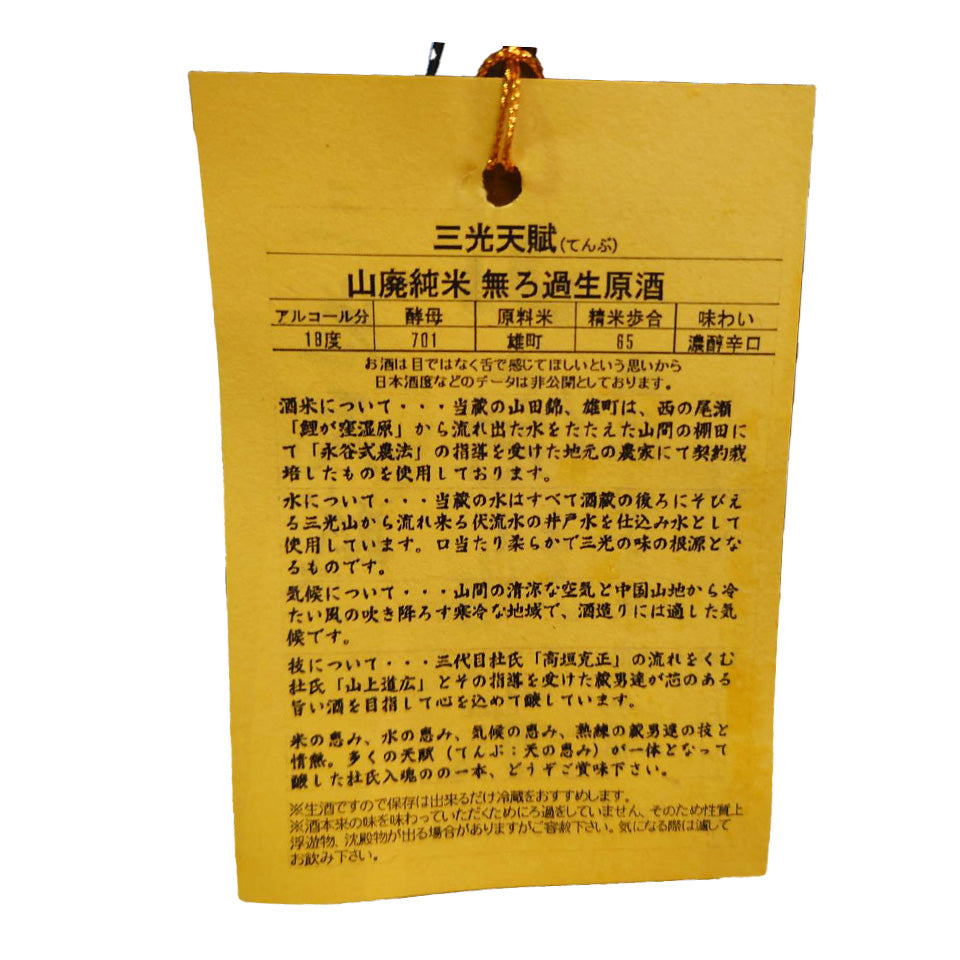 三光天賦(てんぶ)
山廃純米 無ろ過生原酒
アルコール分 酵母 原料米 精米歩合 味わい
18度 701 雄町 65 濃醇辛口
お酒は目ではなく舌で感じてほしいという思いから
日本酒度などのデータは非公開としております。
酒米について・・・当蔵の山田錦、雄町は、西の尾瀬
「鯉が窪湿原」から流れ出た水をたたえた山間の棚田に
て「永谷式農法」の指導を受けた地元の農家にて契約栽
培したものを使用しております。
水について・・・当蔵の水はすべて酒蔵の後ろにそびえ
る三光山から流れ来る伏流水の井戸水を仕込み水として
使用しています。口当たり柔らかで三光の味の根源とな
るものです。
気候について・・・山間の清涼な空気と中国山地から冷
たい風の吹き降ろす寒冷な地域で、酒造りには適した気
候です。
技について・・・三代目杜氏「高垣克正」の流れをくむ
杜氏「山上道広」とその指導を受けた蔵男達が芯のある
旨い酒を目指して心を込めて醸しています。
米の恵み、水の恵み、気候の恵み、熟練の蔵男達の技と
情熱。多くの天賦（てんぶ：天の恵み）が一体となって
醸した杜氏入魂のの一本、どうぞご賞味下さい。
※生酒ですので保存は出来るだけ冷蔵をおすすめします。
※酒本来の味を味わっていただくためにろ過をしていません、そのため性質上
浮遊物、沈殿物が出る場合がありますがご容赦下さい。気になる際は濾して
お飲み下さい。